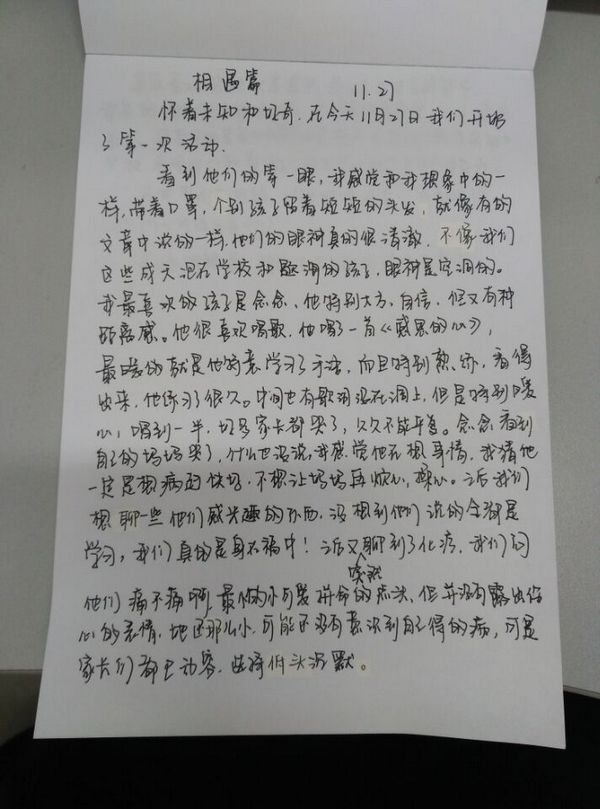 相遇篇 11.27
怀着未知和好奇，在今天11月27日我们开始
了第一次活动.
看到他们的第一眼，我感觉和我想象中的一
样，带着口罩，个别孩子留着短短的头发，就像有的
文章中说的一样，他们的眼神真的很清澈，不像我们
这些成天泡在学校和题海的孩子，眼神是空洞的。
我最喜欢的孩子是念念，他特别大方，自信，但又有种
距离感。他很喜欢唱歌，他唱了一首《感恩的心》，
最的就是他特意学习了手语，而且特别熟练，看得
出来，他练习了很久。中间也有歌词没在调上，但是特别暖
心，唱到一半，好多家长都哭了，久久不能平复。念念看到
自己的妈妈哭了，什么也没说，我感觉他在想事情，我猜他
一定是想病的快好，不想让妈妈再烦心，操心。之后我们
想聊一些他们感兴趣的东西，没想到他们说的全都是
学习，我们真的是身在福中！之后又聊到了化疗，我们问
突然
他们痛不痛啊，最小的小可爱拼命的点头，但并没有露出伤
心的表情，她还那么小，可能还没有意识到自己得的病，可是
家长们都已动容，低头沉默。